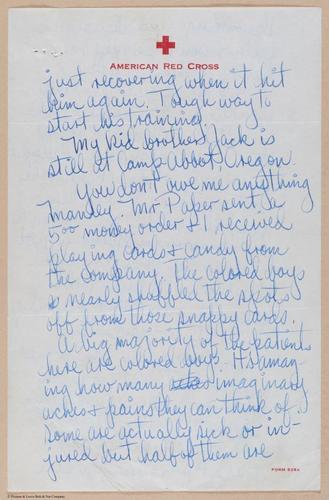 American Red Cross
just recovering when it hit
him again. Tough way to
start his training.
My kid brother Jack is
still at Camp Abbot, Oregon.
You don't owe me anything
Manley. Mr Paper sent a
5.00 money order & I received
playing cards & candy from
the company. The colored boys
nearly shuffled the spots
off from those snappy cards.
A big majority of the patients
here are colored boys. Its amaz-
ing how many imaginary
aches & pains they can think of.
Some are actually sick or in-
jured but half of them are
FORM 539A